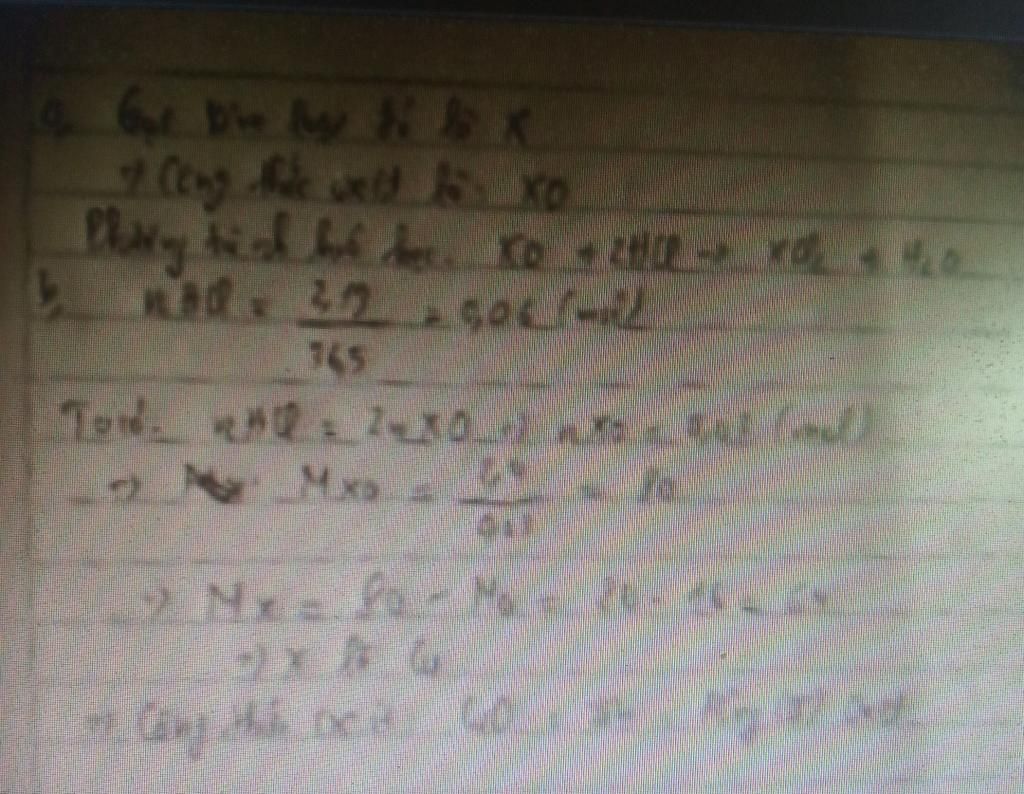 a, Gọi kim loại đó là X
→ Công thức oxit là: XO
Phương trình hoá học: XO + 2HCl → XCl2 + H2O
b, nHCl = 2,19 / 36,5 = 0,06 (mol)
Ta có: nHCl = 2nXO → nXO = 0,03 (mol)
→ MXO = 2,4 / 0,03 = 80
→ MX = 80 - MO = 80 - 16 = 64
→ X là Cu
→ Công thức oxit CuO